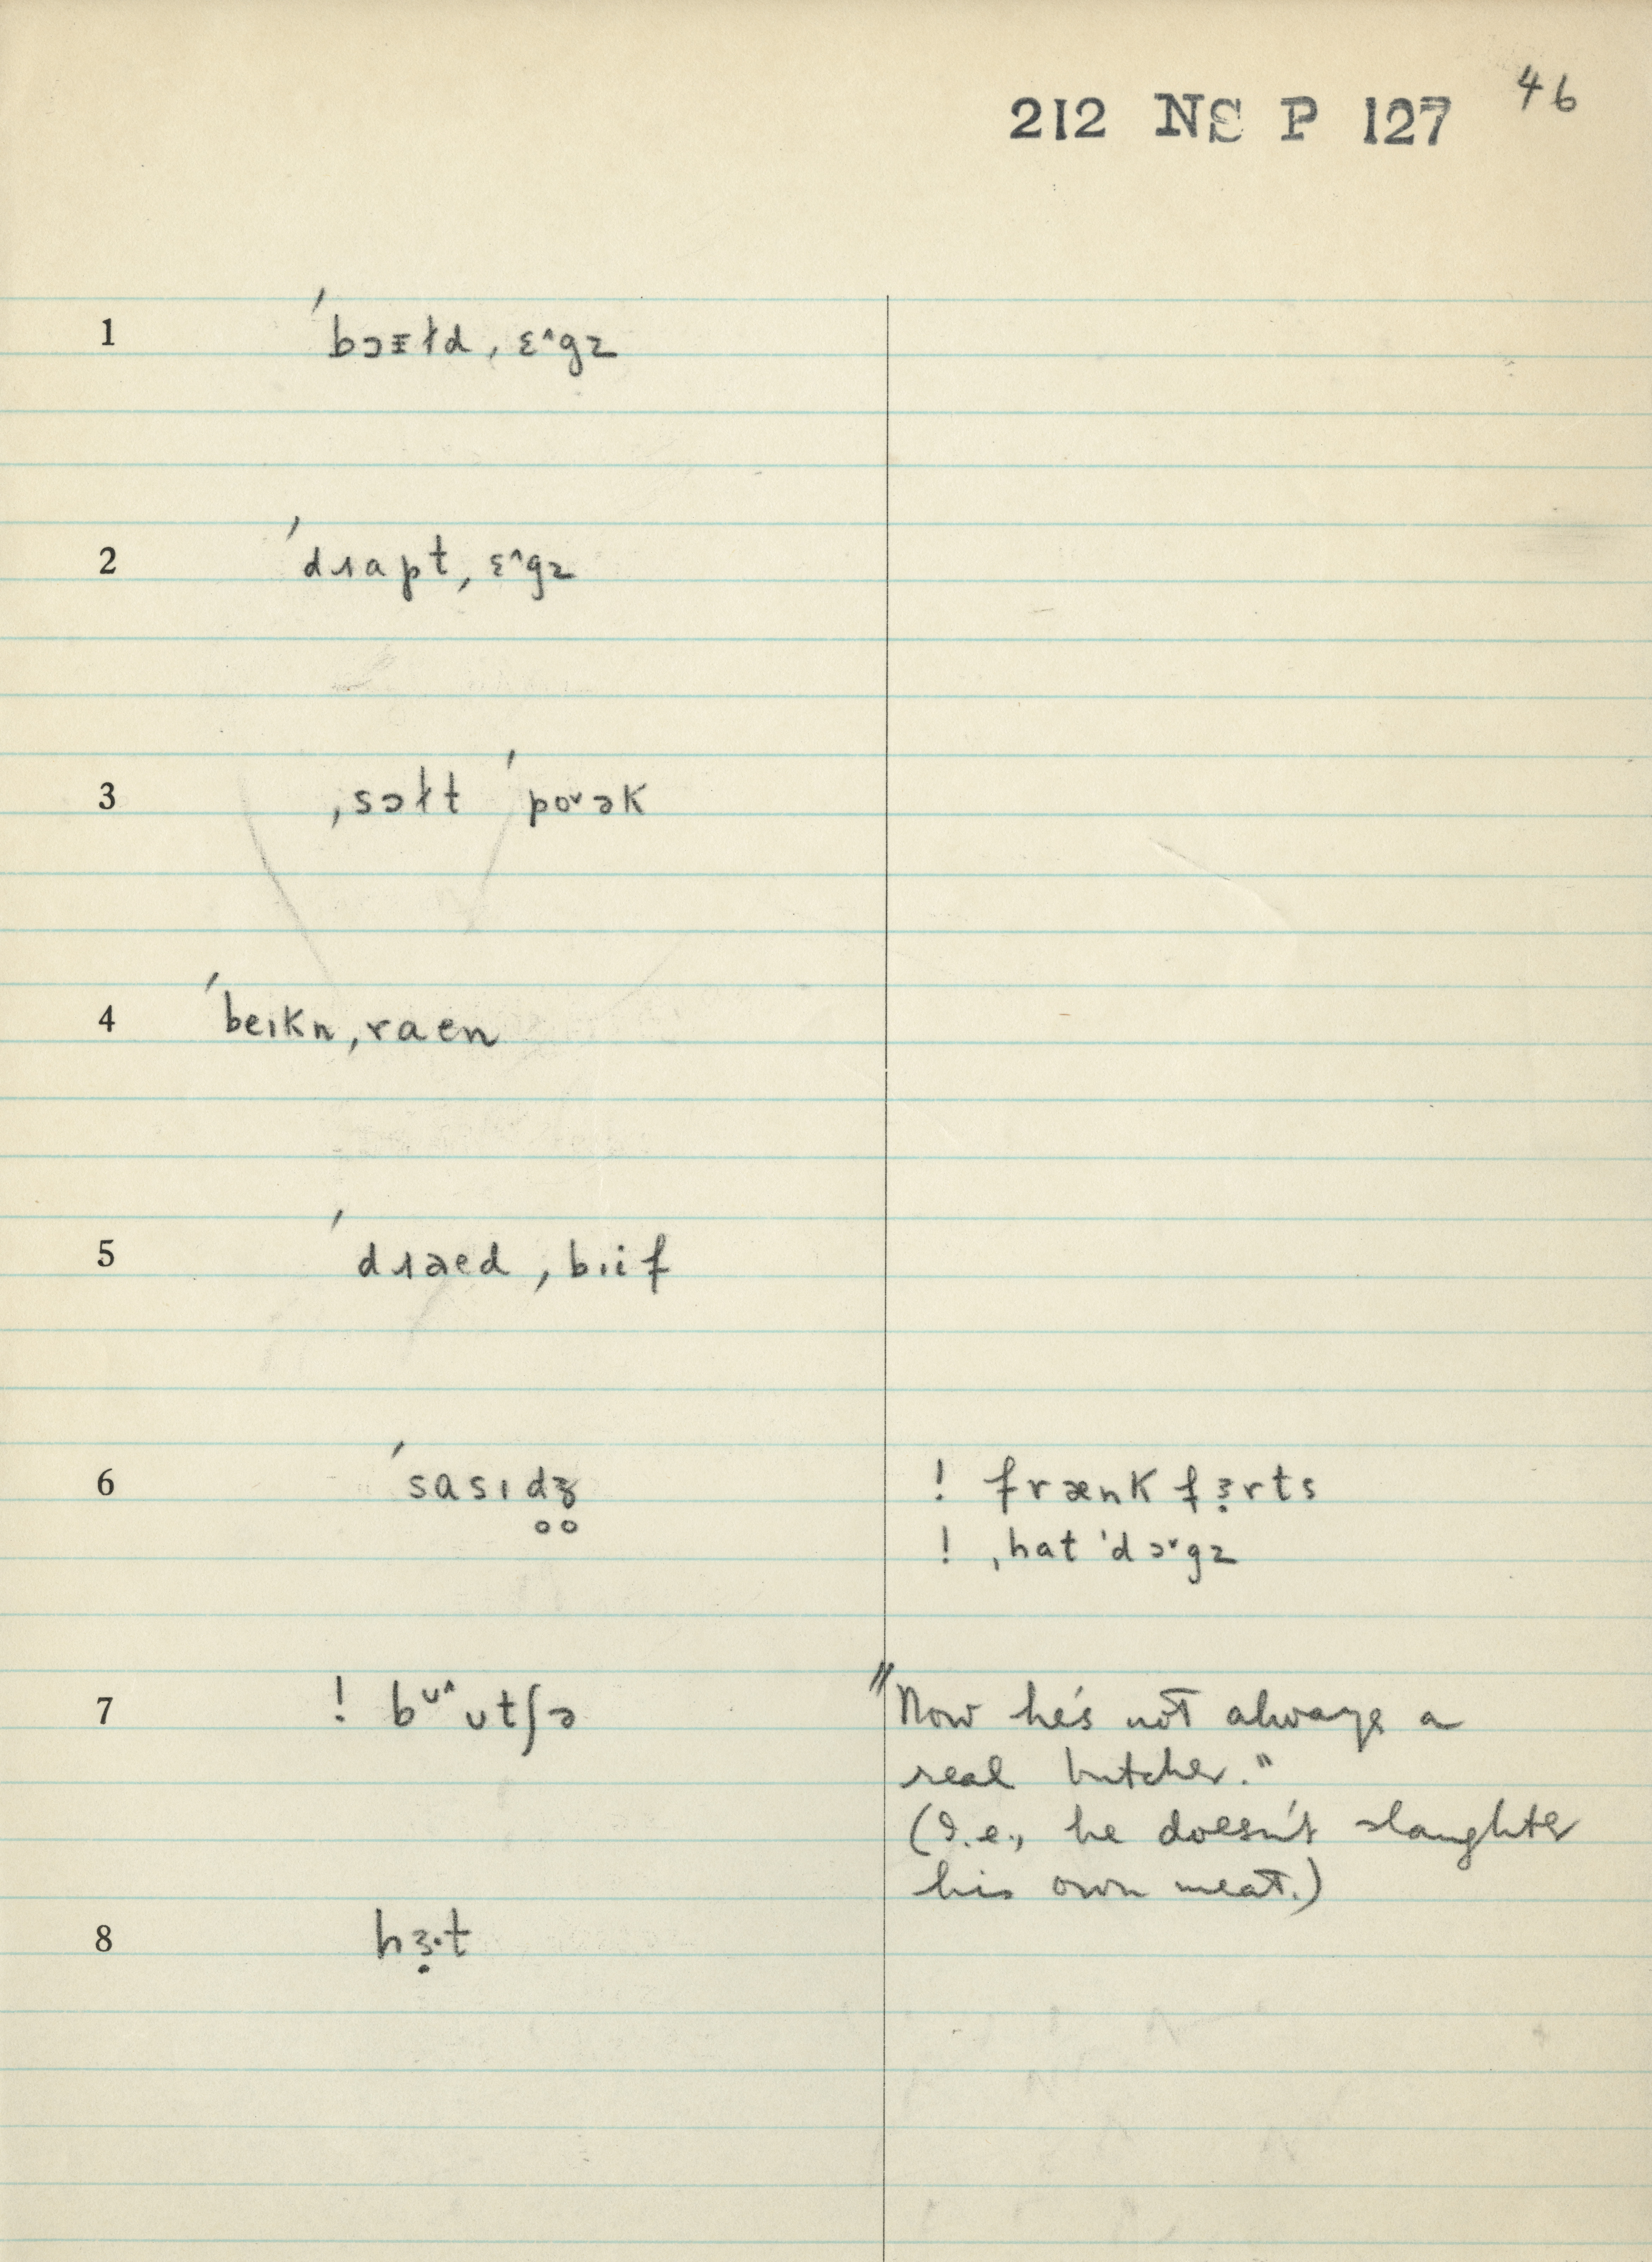 212 NS P 127 46
1 ˈbɔᵻɫd ˌɛ˄gz
2 ˈdɹapt ˌɛ˄gz
3 ˌsɔɫt ˈpo˅ək
4 ˈbeɪkn ˌraen
5 ˈdɹaed ˌbɪif
6 ˈsasɪd̥ʒ̊ ! frænkfɜ̣rts
! ˌhat ˈdɔ˅gz
7 ! bᶷ˄ʊtʃə "Now he's not always a
real butcher."
(I.e., he doesn't slaughter
his own meat.)
8 hɜ̣·t